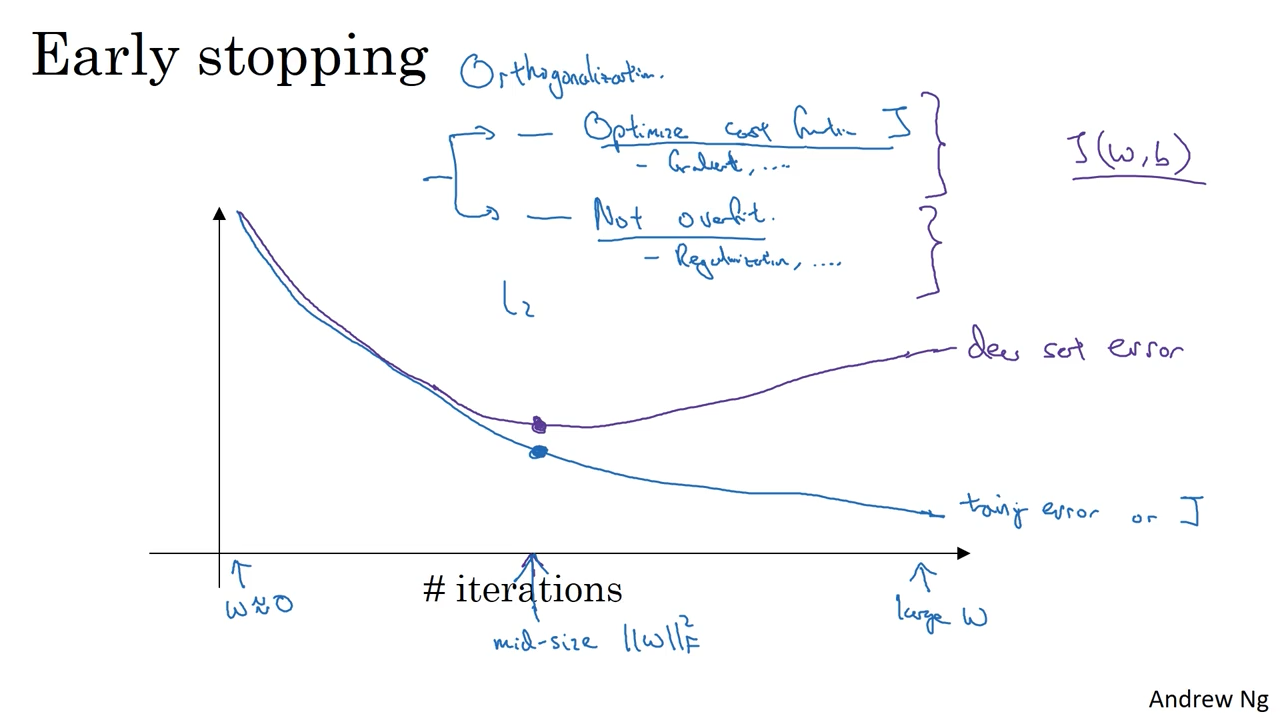 Early stopping
Orthogonalization.
— Optimize cost function J
- Gradient, ....
J(w,b)
— Not overfit.
- Regularization, ....
L2
dev set error
training error or J
# iterations
w≈0
mid-size ||w||²F
large w
Andrew Ng